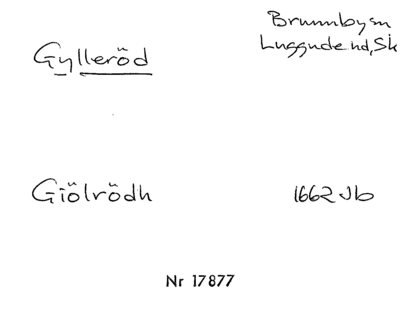 Gylleröd
Brunnby sn
Luggude hd, Sk
Giölrödh
1662 Jb
Nr 17877